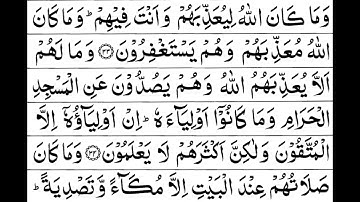 وَمَا كَانَ اللّٰهُ لِيُعَذِّبَهُمْ وَاَنْتَ فِيْهِمْ ؕ وَمَا كَانَ
اللّٰهُ مُعَذِّبَهُمْ وَهُمْ يَسْتَغْفِرُوْنَ ﴿۳۳﴾ وَمَا لَهُمْ
اَلَّا يُعَذِّبَهُمُ اللّٰهُ وَهُمْ يَصُدُّوْنَ عَنِ الْمَسْجِدِ
الْحَرَامِ وَمَا كَانُوْۤا اَوْلِيَآءَهٗ ؕ اِنْ اَوْلِيَآؤُهٗۤ اِلَّا
الْمُتَّقُوْنَ وَلٰكِنَّ اَكْثَرَهُمْ لَا يَعْلَمُوْنَ ﴿۳۴﴾ وَمَا كَانَ
صَلَاتُهُمْ عِنْدَ الْبَيْتِ اِلَّا مُكَآءً وَّتَصْدِيَةً ؕ